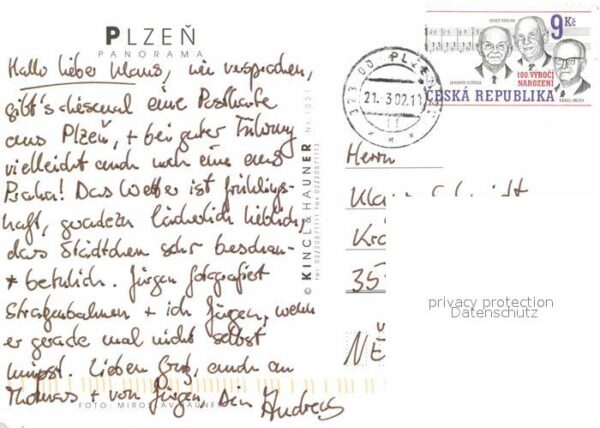 PLZEŇ
PANORAMA
Hallo lieber Klaus, wie versprochen,
gibt's diesmal eine Postkarte
aus Plzeň, + bei guter Führung
vielleicht auch noch eine aus
Praha! Das Wetter ist frühlings-
haft, geradezu lächerlich lieblich,
das Städtchen sehr beschau-
* betulich. Jürgen fotografiert
Straßenbahnen + ich Jürgen, wenn
er gerade mal nicht selbst
knipst. Lieben Gruß, auch an
Thomas + von Jürgen, Dein Andreas
FOTO: MIROSLAV HAUNER
© KINCL & HAUNER Nr. 1021
tel. 02/20571111 fax 02/20571115
323 00 PLZEŇ
21.-3.02.11
11
JOSEF PÁLENÍČEK
9 Kč
100. VÝROČÍ
NAROZENÍ
ČESKÁ REPUBLIKA
Herrn
Kla
Krä
35
NĚ
privacy protection
Datenschutz